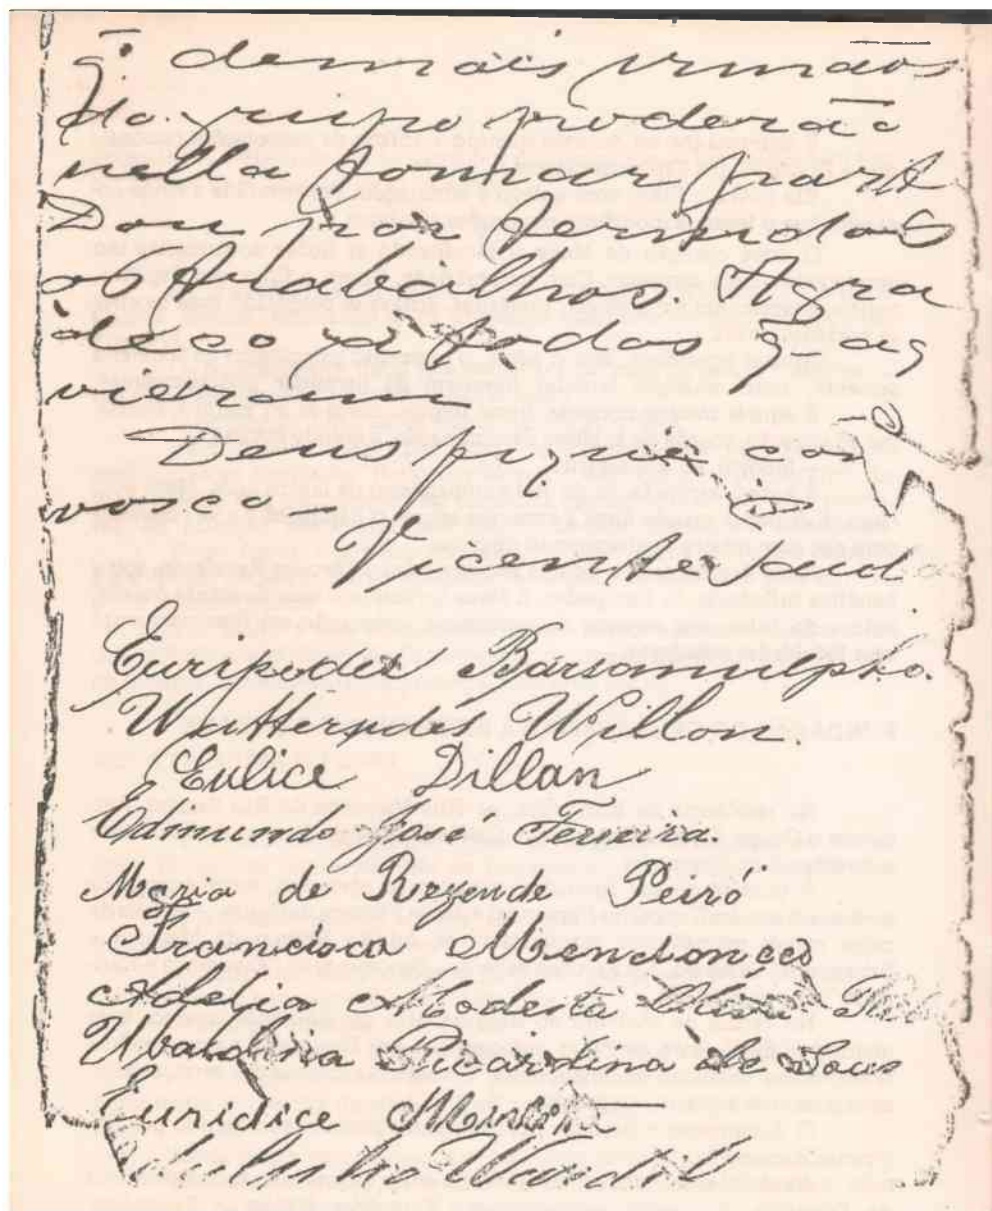 q. demais irmãos
do grupo poderão
nella tomar part
Dou por termindos
os trabalhos. Agra
deço a todos q. aq
vieram
Deus fique con
vosco—
Vicente
Euripedes Barsanulpho.
Watterudes Willon.
Eulice Dillan
Edmundo José Ferreira.
Maria de Rezende Peiró
Francisca Mendonça
Adelia Modesta
Ubaldina Ricardina de Sous
Euridice